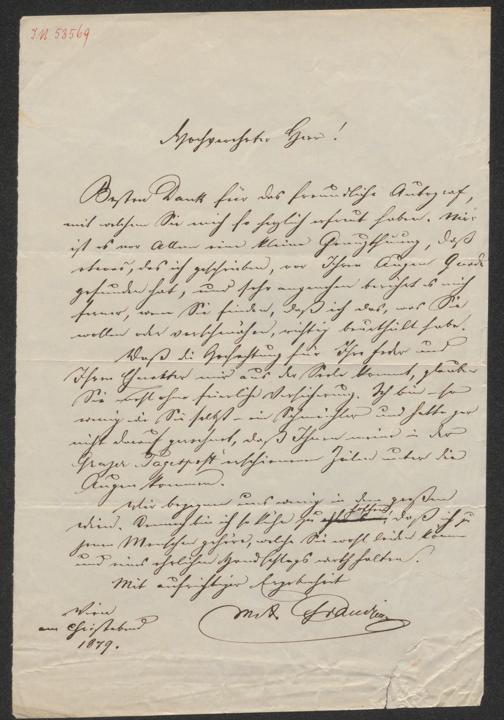 I.N. 53569
Hochverehrter Herr!
Besten Dank für das freundliche Autograf,
mit welchem Sie mich so herzlich erfreut haben. Mir
ist es vor Allem eine kleine Genugthuung, daß
etwas, das ich geschrieben, vor Ihren Augen Gnade
gefunden hat, und sehr angenehm berührt es mich
ferner, wenn Sie finden, daß ich das, was Sie
wollen oder verschmähen, richtig beurtheilt habe.
Daß die Hochachtung für Ihre Feder und
Ihren Charakter mir aus der Seele kommt, glauben
Sie wohl ohne feierliche Versicherung. Ich bin so
wenig wie Sie selbst ein Schmeichler und hatte gar
nicht darauf gerechnet, daß Ihnen meine in der
Grazer "Tagespost" erschienenen Zeilen unter die
Augen kommen.
Wir begegnen uns wenig in dem großen
Wien. Dennoch bin ich so kühn zu hoffen, daß ich zu
jenen Menschen gehöre, welche Sie wohl leiden können
und eines ehrlichen Handschlags werth halten.
Mit aufrichtiger Ergebenheit
Wien
am Christabend
1879.